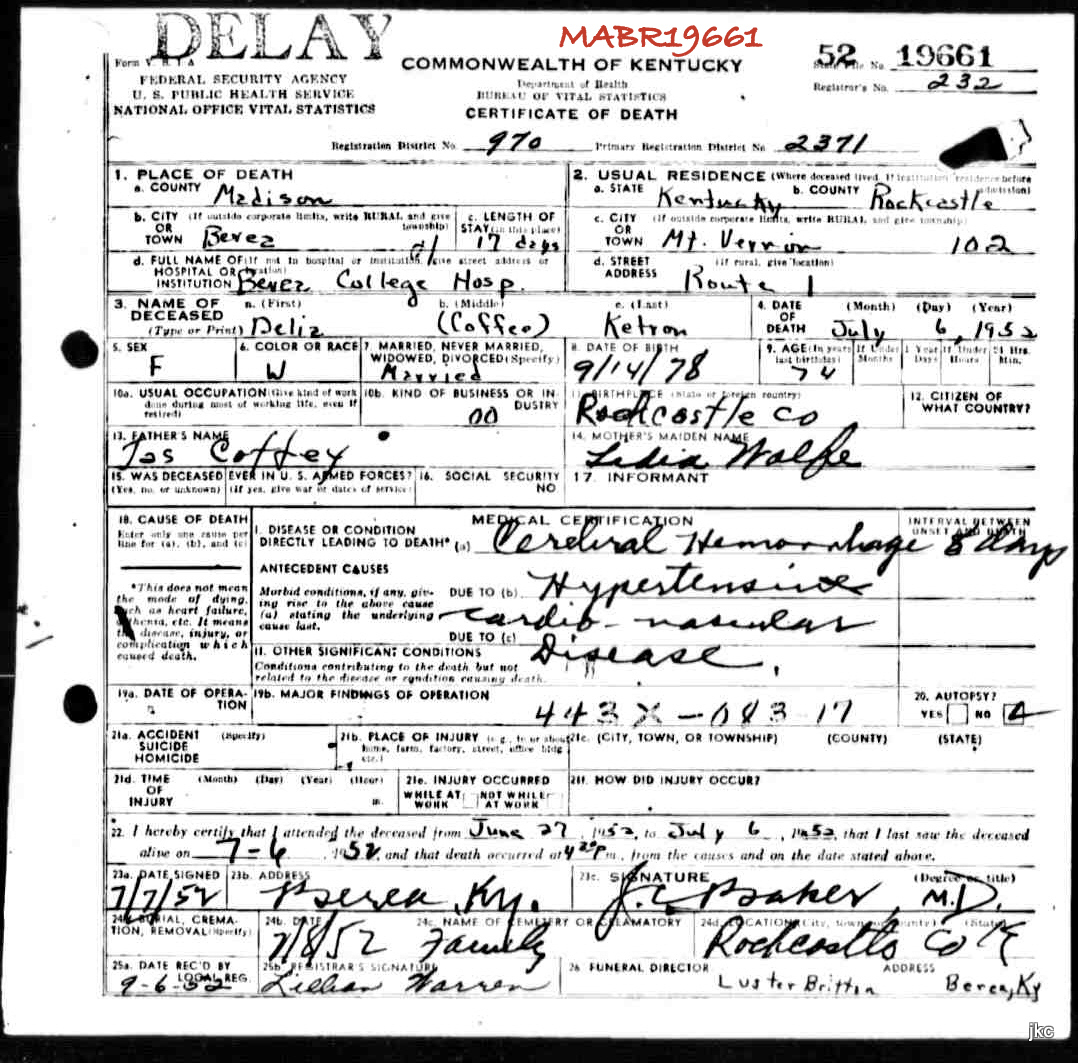 DELAY
MABR19661
Form V. S. 1-A
FEDERAL SECURITY AGENCY
U. S. PUBLIC HEALTH SERVICE
NATIONAL OFFICE VITAL STATISTICS
COMMONWEALTH OF KENTUCKY
Department of Health
BUREAU OF VITAL STATISTICS
CERTIFICATE OF DEATH
State File No. 52 19661
Registrar's No. 232
Registration District No. 970 Primary Registration District No 2371
1. PLACE OF DEATH
a. COUNTY Madison
b. CITY (If outside corporate limits, write RURAL and give township)
OR
TOWN Berea
c. LENGTH OF STAY (in this place)
17 days
d. FULL NAME OF (If not in hospital or institution, give street address or location)
HOSPITAL OR
INSTITUTION Berea College Hosp.
2. USUAL RESIDENCE (Where deceased lived. If institution: residence before admission)
a. STATE Kentucky b. COUNTY Rockcastle
c. CITY (If outside corporate limits, write RURAL and give township)
OR
TOWN Mt. Vernon 102
d. STREET (If rural, give location)
ADDRESS Route 1
3. NAME OF DECEASED
(Type or Print)
a. (First) Delia
b. (Middle) (Coffee)
c. (Last) Ketron
4. DATE OF DEATH (Month) (Day) (Year)
July 6, 1952
5. SEX
F
6. COLOR OR RACE
W
7. MARRIED, NEVER MARRIED, WIDOWED, DIVORCED (Specify)
Married
8. DATE OF BIRTH
9/14/78
9. AGE (In years last birthday) If Under 1 Year Months Days If Under 24 Hrs. Hours Min.
74
10a. USUAL OCCUPATION (Give kind of work done during most of working life, even if retired)
10b. KIND OF BUSINESS OR INDUSTRY
00
11. BIRTHPLACE (State or foreign country)
Rockcastle Co
12. CITIZEN OF WHAT COUNTRY?
13. FATHER'S NAME
Jas Coffey
14. MOTHER'S MAIDEN NAME
Lidia Wolfe
15. WAS DECEASED EVER IN U. S. ARMED FORCES?
(Yes, no, or unknown) (If yes, give war or dates of service)
16. SOCIAL SECURITY NO
17. INFORMANT
18. CAUSE OF DEATH
Enter only one cause per line for (a), (b), and (c)
*This does not mean the mode of dying, such as heart failure, asthenia, etc. It means the disease, injury, or complication which caused death.
MEDICAL CERTIFICATION
INTERVAL BETWEEN ONSET AND DEATH
I. DISEASE OR CONDITION
DIRECTLY LEADING TO DEATH* (a) Cerebral Hemorrhage 8 days
ANTECEDENT CAUSES
Morbid conditions, if any, giving rise to the above cause (a) stating the underlying cause last.
DUE TO (b) Hypertensive
cardio-vascular
DUE TO (c)
Disease.
II. OTHER SIGNIFICANT CONDITIONS
Conditions contributing to the death but not related to the disease or condition causing death.
19a. DATE OF OPERATION
19b. MAJOR FINDINGS OF OPERATION
443X-083-17
20. AUTOPSY?
YES NO
21a. ACCIDENT (Specify)
SUICIDE
HOMICIDE
21b. PLACE OF INJURY (e.g., in or about home, farm, factory, street, office bldg etc.)
21c. (CITY, TOWN, OR TOWNSHIP) (COUNTY) (STATE)
21d. TIME OF INJURY (Month) (Day) (Year) (Hour)
m.
21e. INJURY OCCURRED
WHILE AT WORK NOT WHILE AT WORK
21f. HOW DID INJURY OCCUR?
22. I hereby certify that I attended the deceased from June 27, 1952, to July 6, 1952, that I last saw the deceased
alive on 7-6, 1952, and that death occurred at 4 20 p m., from the causes and on the date stated above.
23a. DATE SIGNED
7/7/52
23b. ADDRESS
Berea, Ky.
23c. SIGNATURE (Degree or title)
J.C. Baker, M.D.
24a. BURIAL, CREMATION, REMOVAL (Specify)
24b. DATE
7/8/52
24c. NAME OF CEMETERY OR CREMATORY
Family
24d. LOCATION (City, town, or county) (State)
Rockcastle Co
25a. DATE REC'D BY LOCAL REG.
9-6-52
25b. REGISTRAR'S SIGNATURE
Lillian Warren
26 FUNERAL DIRECTOR ADDRESS
Luster Britton Berea, Ky
jkc